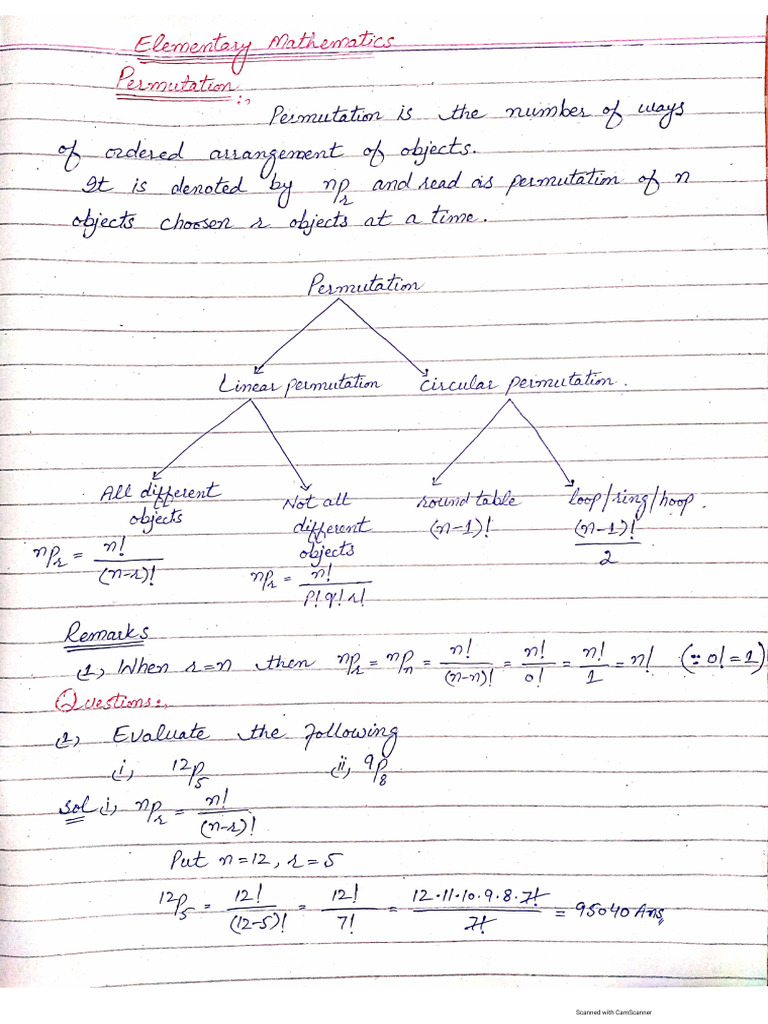 Elementary Mathematics
Permutation:-
Permutation is the number of ways
of ordered arrangement of objects.
It is denoted by nPr and read as permutation of n
objects choosen r objects at a time.
Permutation
Linear permutation circular permutation.
All different objects
nPr = n!/(n-r)!
Not all different objects
nPr = n!/P!q!r!
round table
(n-1)!
loop/ring/hoop.
(n-1)!/2
Remarks
1, When r=n then nPr = nPn = n!/(n-n)! = n!/0! = n!/1 = n! (∵ 0! = 1)
Questions:-
1, Evaluate the following
i, 12P5 ii, 9P8
Sol i, nPr = n!/(n-r)!
Put n=12, r=5
12P5 = 12!/(12-5)! = 12!/7! = 12·11·10·9·8·7!/7! = 95040 Ans,
Scanned with CamScanner